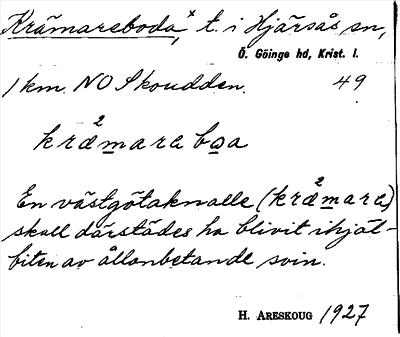 Krämareboda,ˣ t. i Hjärsås sn,
Ö. Göinge hd, Krist. l.
1 km. NO Skoudden. 49
kræ²mara bǫa
En västgötaknalle (kræ²mara)
skall därstädes ha blivit ihjäl-
biten av ållonbetande svin.
H. ARESKOUG 1927